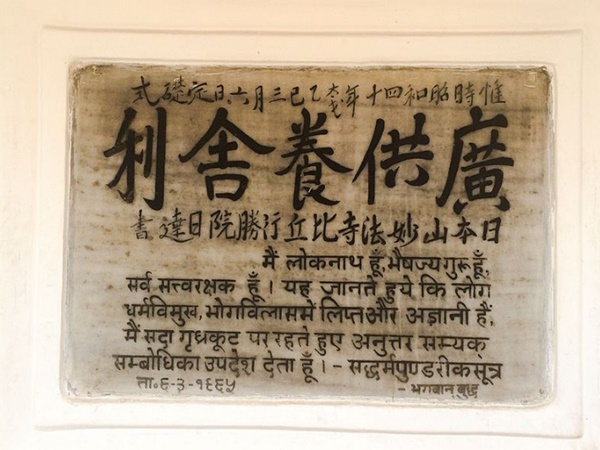 惟時昭和四十年乙巳三月六日定礎式
廣供養舎利
日本山妙法寺比丘行勝院日達書
मैं लोकनाथ हूँ, भैषज्यगुरू हूँ,
सर्व सत्त्वरक्षक हूँ। यह जानते हुये कि लोग
धर्मविमुख, भोगविलासमें लिप्त और अज्ञानी हैं,
मैं सदा गृधकूट पर रहते हुए अनुत्तर सम्यक्
सम्बोधिका उपदेश देता हूँ। - सद्धर्मपुण्डरीक सूत्र
ता०६-३-१९६५ - भगवान् बुद्ध